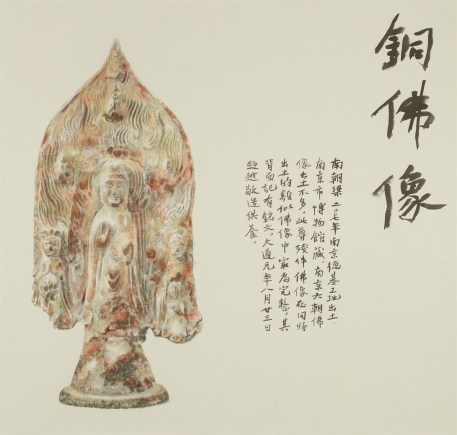 銅佛像
南朝梁二〇〇七年南京德基工地出土.
南京市博物館藏.南京六朝佛
像出土不多,此尊殘件佛像在同時
出土的類似佛像中最為完整,其
背面記有銘文,大通元年八月廿三日
超越敬造供養。